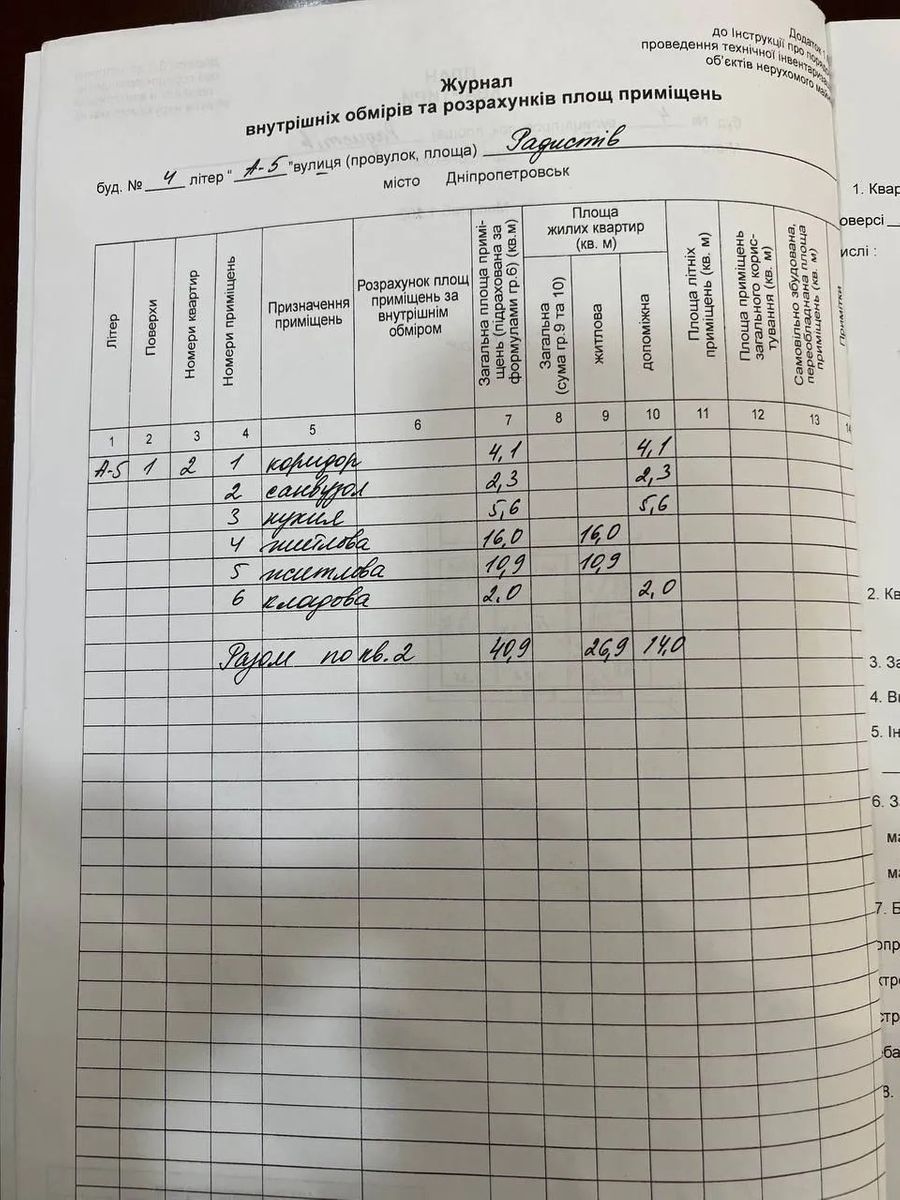 Додаток 1
до Інструкції про
проведення технічної
об'єктів нерухомого
Журнал
внутрішніх обмірів та розрахунків площ приміщень
буд. № 4 літер "А-5" вулиця (провулок, площа) Радистів
місто Дніпропетровськ
Літер
Поверхи
Номери квартир
Номери приміщень
Призначення приміщень
Розрахунок площ приміщень за внутрішнім обміром
Загальна площа примі-
щень (підрахована за
формулами гр.6) (кв.м)
Площа
жилих квартир
(кв. м)
Загальна
(сума гр.9 та 10)
житлова
допоміжна
Площа літніх
приміщень (кв. м)
Площа приміщень
загального корис-
тування (кв. м)
Самовільно збудована,
переобладнана площа
приміщень (кв. м)
Примітки
1 2 3 4 5 6 7 8 9 10 11 12 13 14
А-5 1 2 1 коридор 4,1 4,1
2 санвузол 2,3 2,3
3 кухня 5,6 5,6
4 житлова 16,0 16,0
5 житлова 10,9 10,9
6 кладова 2.0 2,0
Разом по кв. 2 40,9 26,9 14,0
1. Квар
оверсі
ислі :
2. Кв
3. За
4. Ви
5. Ін
6. З
ма
ма
7. Б
опр
ктро
стр
ба
8.